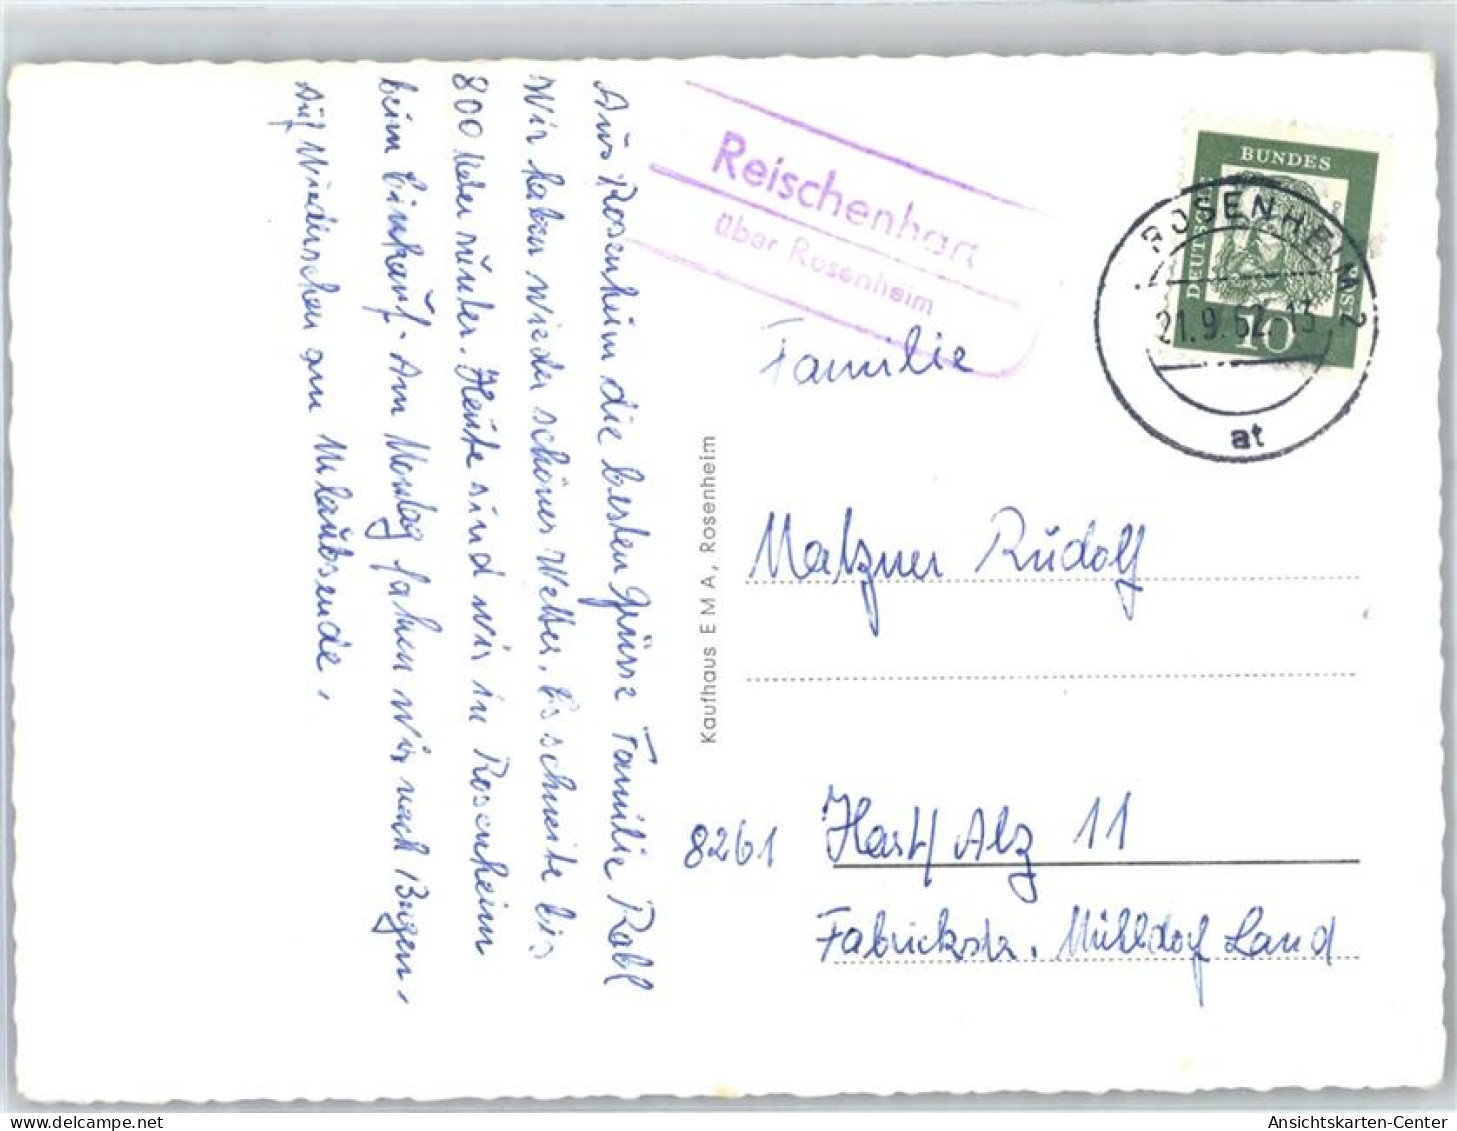 Aus Rosenheim die besten Grüsse Familie Rabl
Wir haben wieder schönes Wetter. Es schneite bis
800 Meter runter. Heute sind wir in Rosenheim
beim Einkauf. Am Montag fahren wir nach
Auf Wiedersehen am Urlaubsende.
Reischenhart
über Rosenheim
DEUTSCHE BUNDESPOST
10
ROSENHEIM 2
21.9.62.-13
at
Kaufhaus EMA, Rosenheim
Familie
Matzner Rudolf
8261 Hart/Alz 11
Fabrickstr. Mühldorf Land
Ansichtskarten-Center